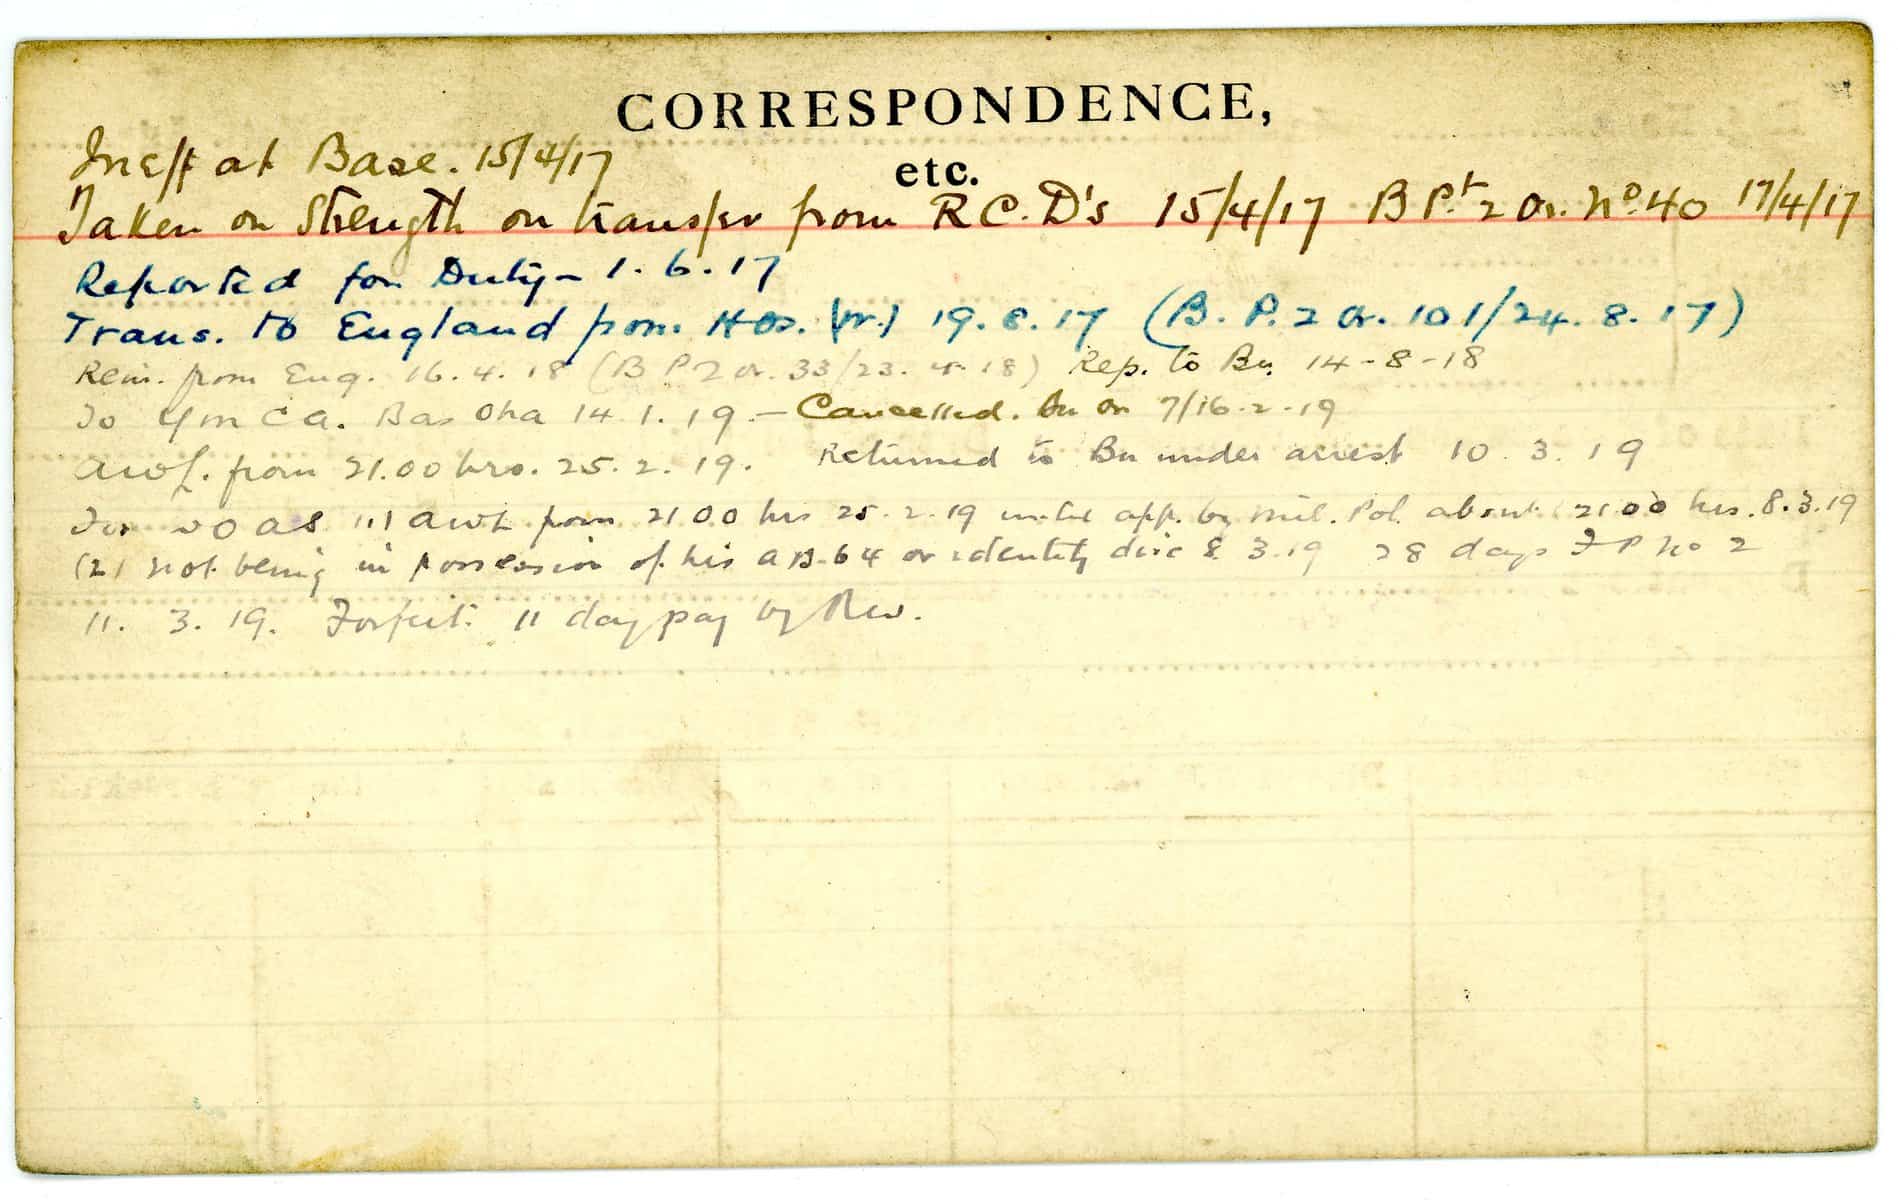 CORRESPONDENCE,
etc.
Ineff at Base. 15/4/17
Taken on Strength on transfer from R.C.D's 15/4/17 B Pt. 2 Or. No. 40 17/4/17
Reported for Duty - 1.6.17
Trans. to England from Hos. 19.8.17 (B. P. 2 Or. 101/24.8.17)
Rein. from Eng. 16.4.18 (B P 2 Or. 33/23.4.18) Rep. to Bn. 14-8-18
To YMCA. Bas 14.1.19 - Cancelled. Bn Or 7/16-2-19
AWL. from 21.00 hrs. 25.2.19. Returned to Bn under arrest 10.3.19
AWL from 2100 hrs 25.2.19 until app. by Mil. Pol. about 2100 hrs. 8.3.19
(2) Not being in possession of his AB.64 or identity disc 8.3.19 28 days FP No 2
11.3.19. Forfeit: 11 day pay by RW.